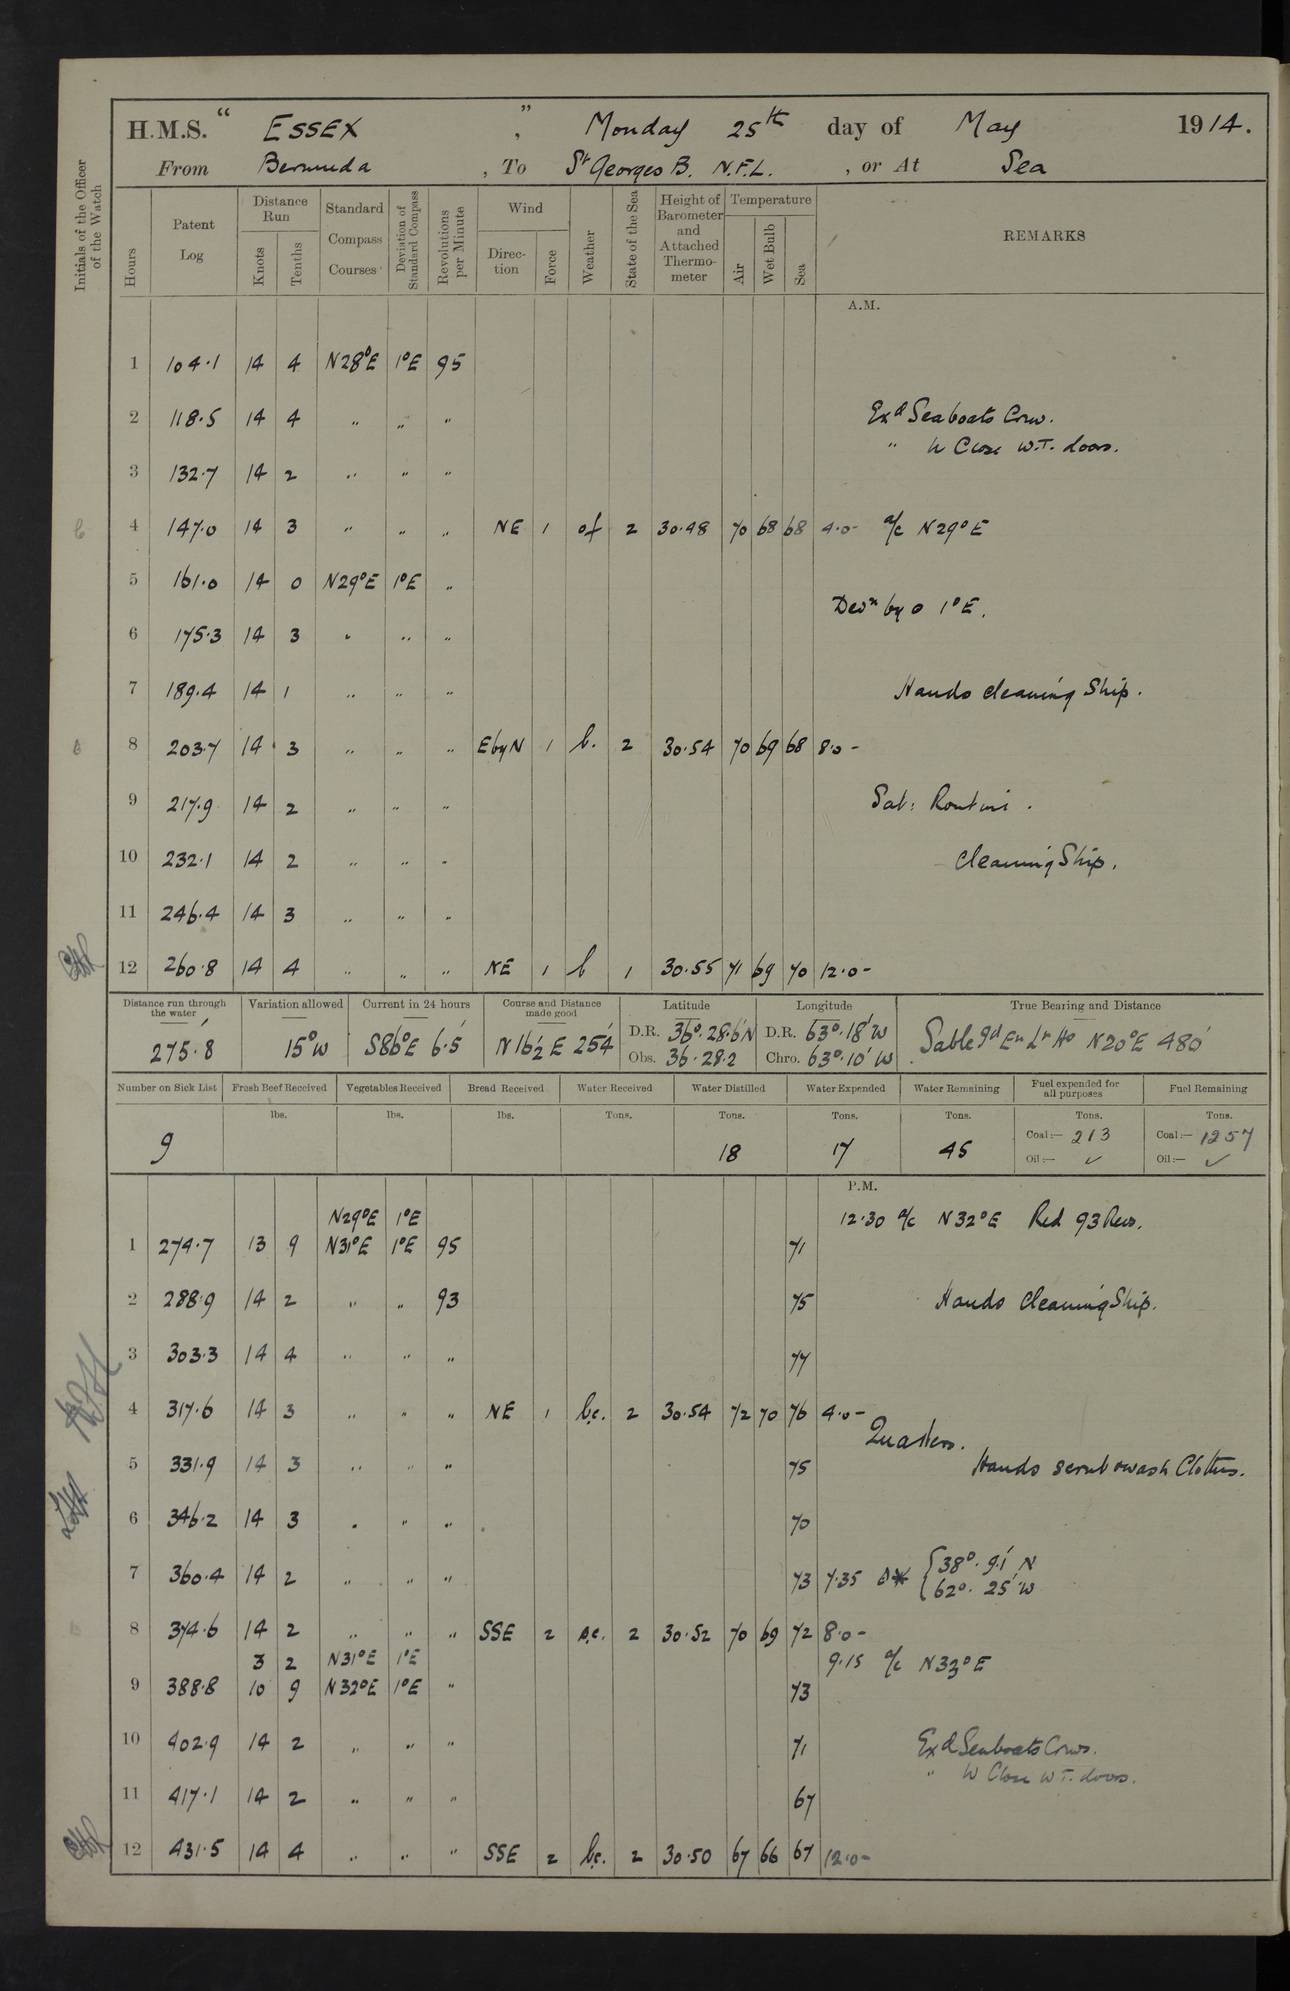 H.M.S. “ ESSEX ” , Monday 25th day of May 1914.
From Bermuda , To St Georges B. N.F.L. , or At Sea
Initials of the Officer of the Watch
Hours
Patent Log
Distance Run
Knots
Tenths
Standard Compass Courses
Deviation of Standard Compass
Revolutions per Minute
Wind
Direction
Force
Weather
State of the Sea
Height of Barometer and Attached Thermometer
Temperature
Air
Wet Bulb
Sea
REMARKS
A.M.
1 104.1 14 4 N28°E 1°E 95
2 118.5 14 4 " " " Exd Seaboats Crew.
" W Close W.T. doors.
3 132.7 14 2 " " "
4 147.0 14 3 " " " NE 1 of 2 30.48 70 68 68 4.0- a/c N29°E
5 161.0 14 0 N29°E 1°E "
Devn by o 1°E.
6 175.3 14 3 " " "
7 189.4 14 1 " " " Hands cleaning Ship.
8 203.7 14 3 " " " EbyN 1 b. 2 30.54 70 69 68 8.0-
9 217.9 14 2 " " " Sat: Routine.
10 232.1 14 2 " " " Cleaning Ship.
11 246.4 14 3 " " "
12 260.8 14 4 " " " NE 1 b 1 30.55 71 69 70 12.0-
Distance run through the water
Variation allowed
Current in 24 hours
Course and Distance made good
Latitude
Longitude
True Bearing and Distance
275.8' 15°W S86°E 6.5' N16½E 254' D.R. 36°.28.6'N D.R. 63°.18'W Sable Id En Lt Ho N20°E 480'
Obs. 36.28.2 Chro. 63°.10'W
Number on Sick List
Fresh Beef Received
Vegetables Received
Bread Received
Water Received
Water Distilled
Water Expended
Water Remaining
Fuel expended for all purposes
Fuel Remaining
lbs. lbs. lbs. Tons. Tons. Tons. Tons. Tons. Tons.
9 18 17 45 Coal:— 213 Coal:— 1257
Oil:— ✓ Oil:— ✓
P.M.
N29°E 1°E 12.30 a/c N32°E Red 93 Revs.
1 274.7 13 9 N31°E 1°E 95 71
2 288.9 14 2 " " 93 75 Hands Cleaning Ship.
3 303.3 14 4 " " " 77
4 317.6 14 3 " " " NE 1 b.c. 2 30.54 72 70 76 4.0-
Quarters.
5 331.9 14 3 " " " 75 Hands scrub & wash Clothes.
6 346.2 14 3 " " " 70
7 360.4 14 2 " " " 73 7.35 {38°.9.1' N
{62°. 25' W
8 374.6 14 2 " " " SSE 2 2 30.52 70 69 72 8.0-
3 2 N31°E 1°E 9.15 a/c N33°E
9 388.8 10 9 N32°E 1°E " 73
10 402.9 14 2 " " " 71 Exd Seaboats Crews.
" W Close W.T. doors.
11 417.1 14 2 " " " 67
12 431.5 14 4 " " " SSE 2 b.c. 2 30.50 67 66 67 12.0-